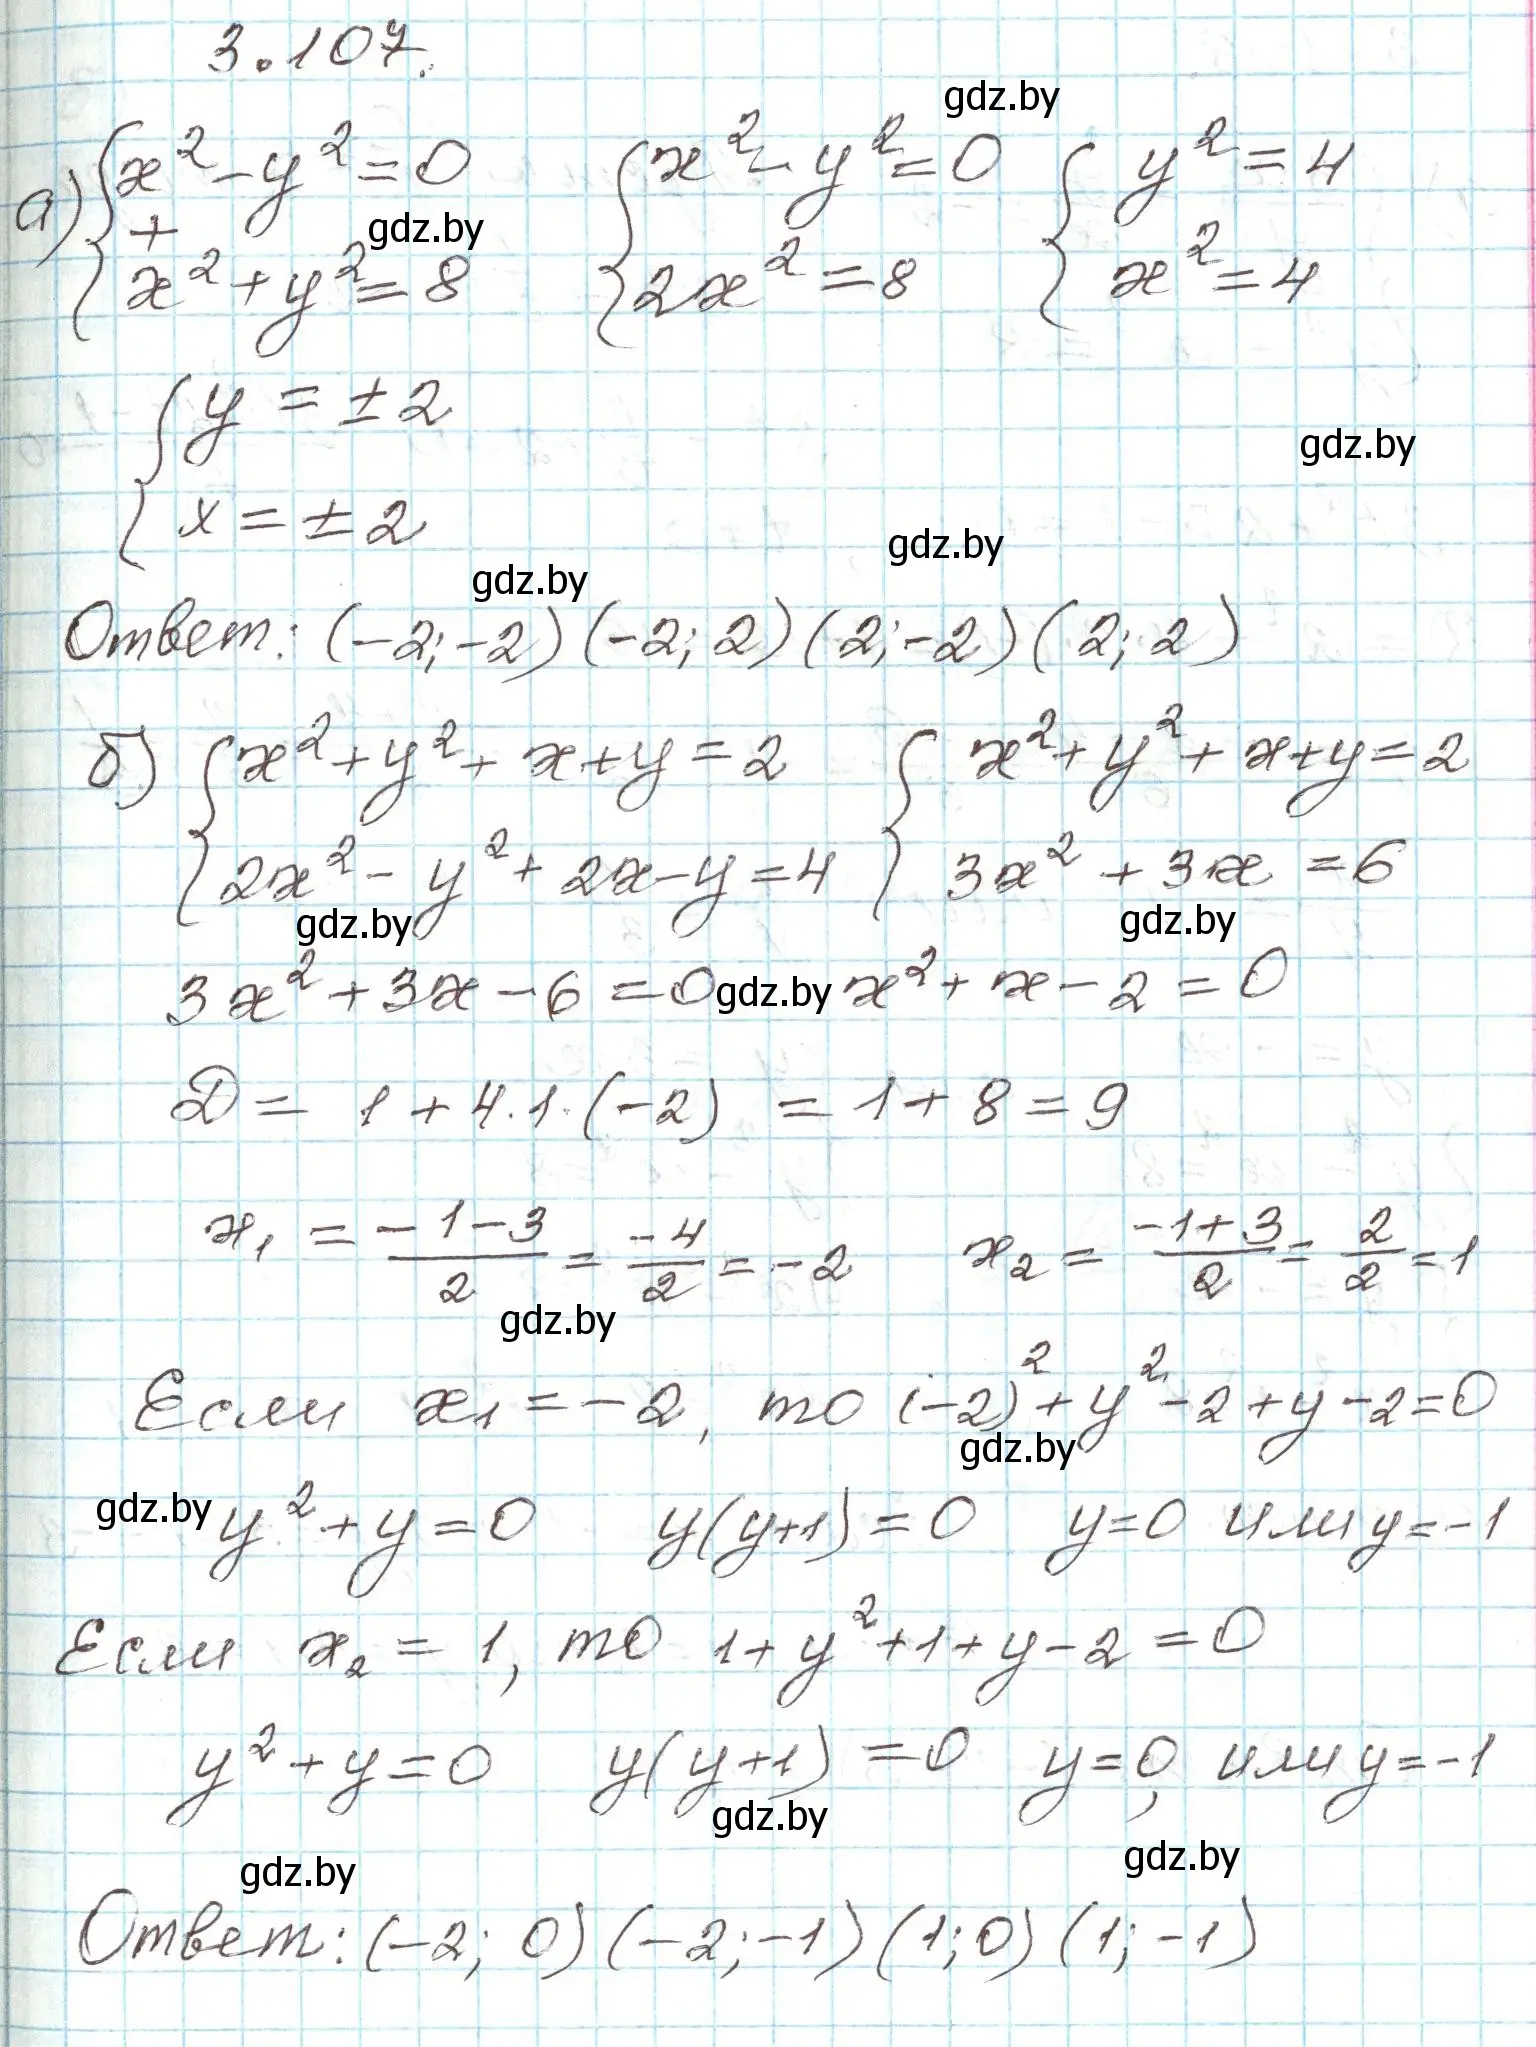 3.107.
gdz.by
а) { x² - y² = 0 { x² - y² = 0 { y² = 4
+ gdz.by
x² + y² = 8 2x² = 8 x² = 4
{ y = ±2
gdz.by
x = ±2
gdz.by
gdz.by
Ответ: (-2; -2) (-2; 2) (2; -2) (2; 2)
б) { x² + y² + x + y = 2 { x² + y² + x + y = 2
2x² - y² + 2x - y = 4 3x² + 3x = 6
gdz.by gdz.by
3x² + 3x - 6 = 0 gdz.by x² + x - 2 = 0
D = 1 + 4·1·(-2) = 1 + 8 = 9
x₁ = (-1-3)/2 = -4/2 = -2 x₂ = (-1+3)/2 = 2/2 = 1
gdz.by
Если x₁ = -2, то (-2)² + y² - 2 + y - 2 = 0
gdz.by
gdz.by y² + y = 0 y(y+1) = 0 y=0 или y=-1
Если x₂ = 1, то 1 + y² + 1 + y - 2 = 0
y² + y = 0 y(y+1) = 0 y=0, или y=-1
gdz.by
gdz.by
gdz.by
Ответ: (-2; 0) (-2; -1) (1; 0) (1; -1)